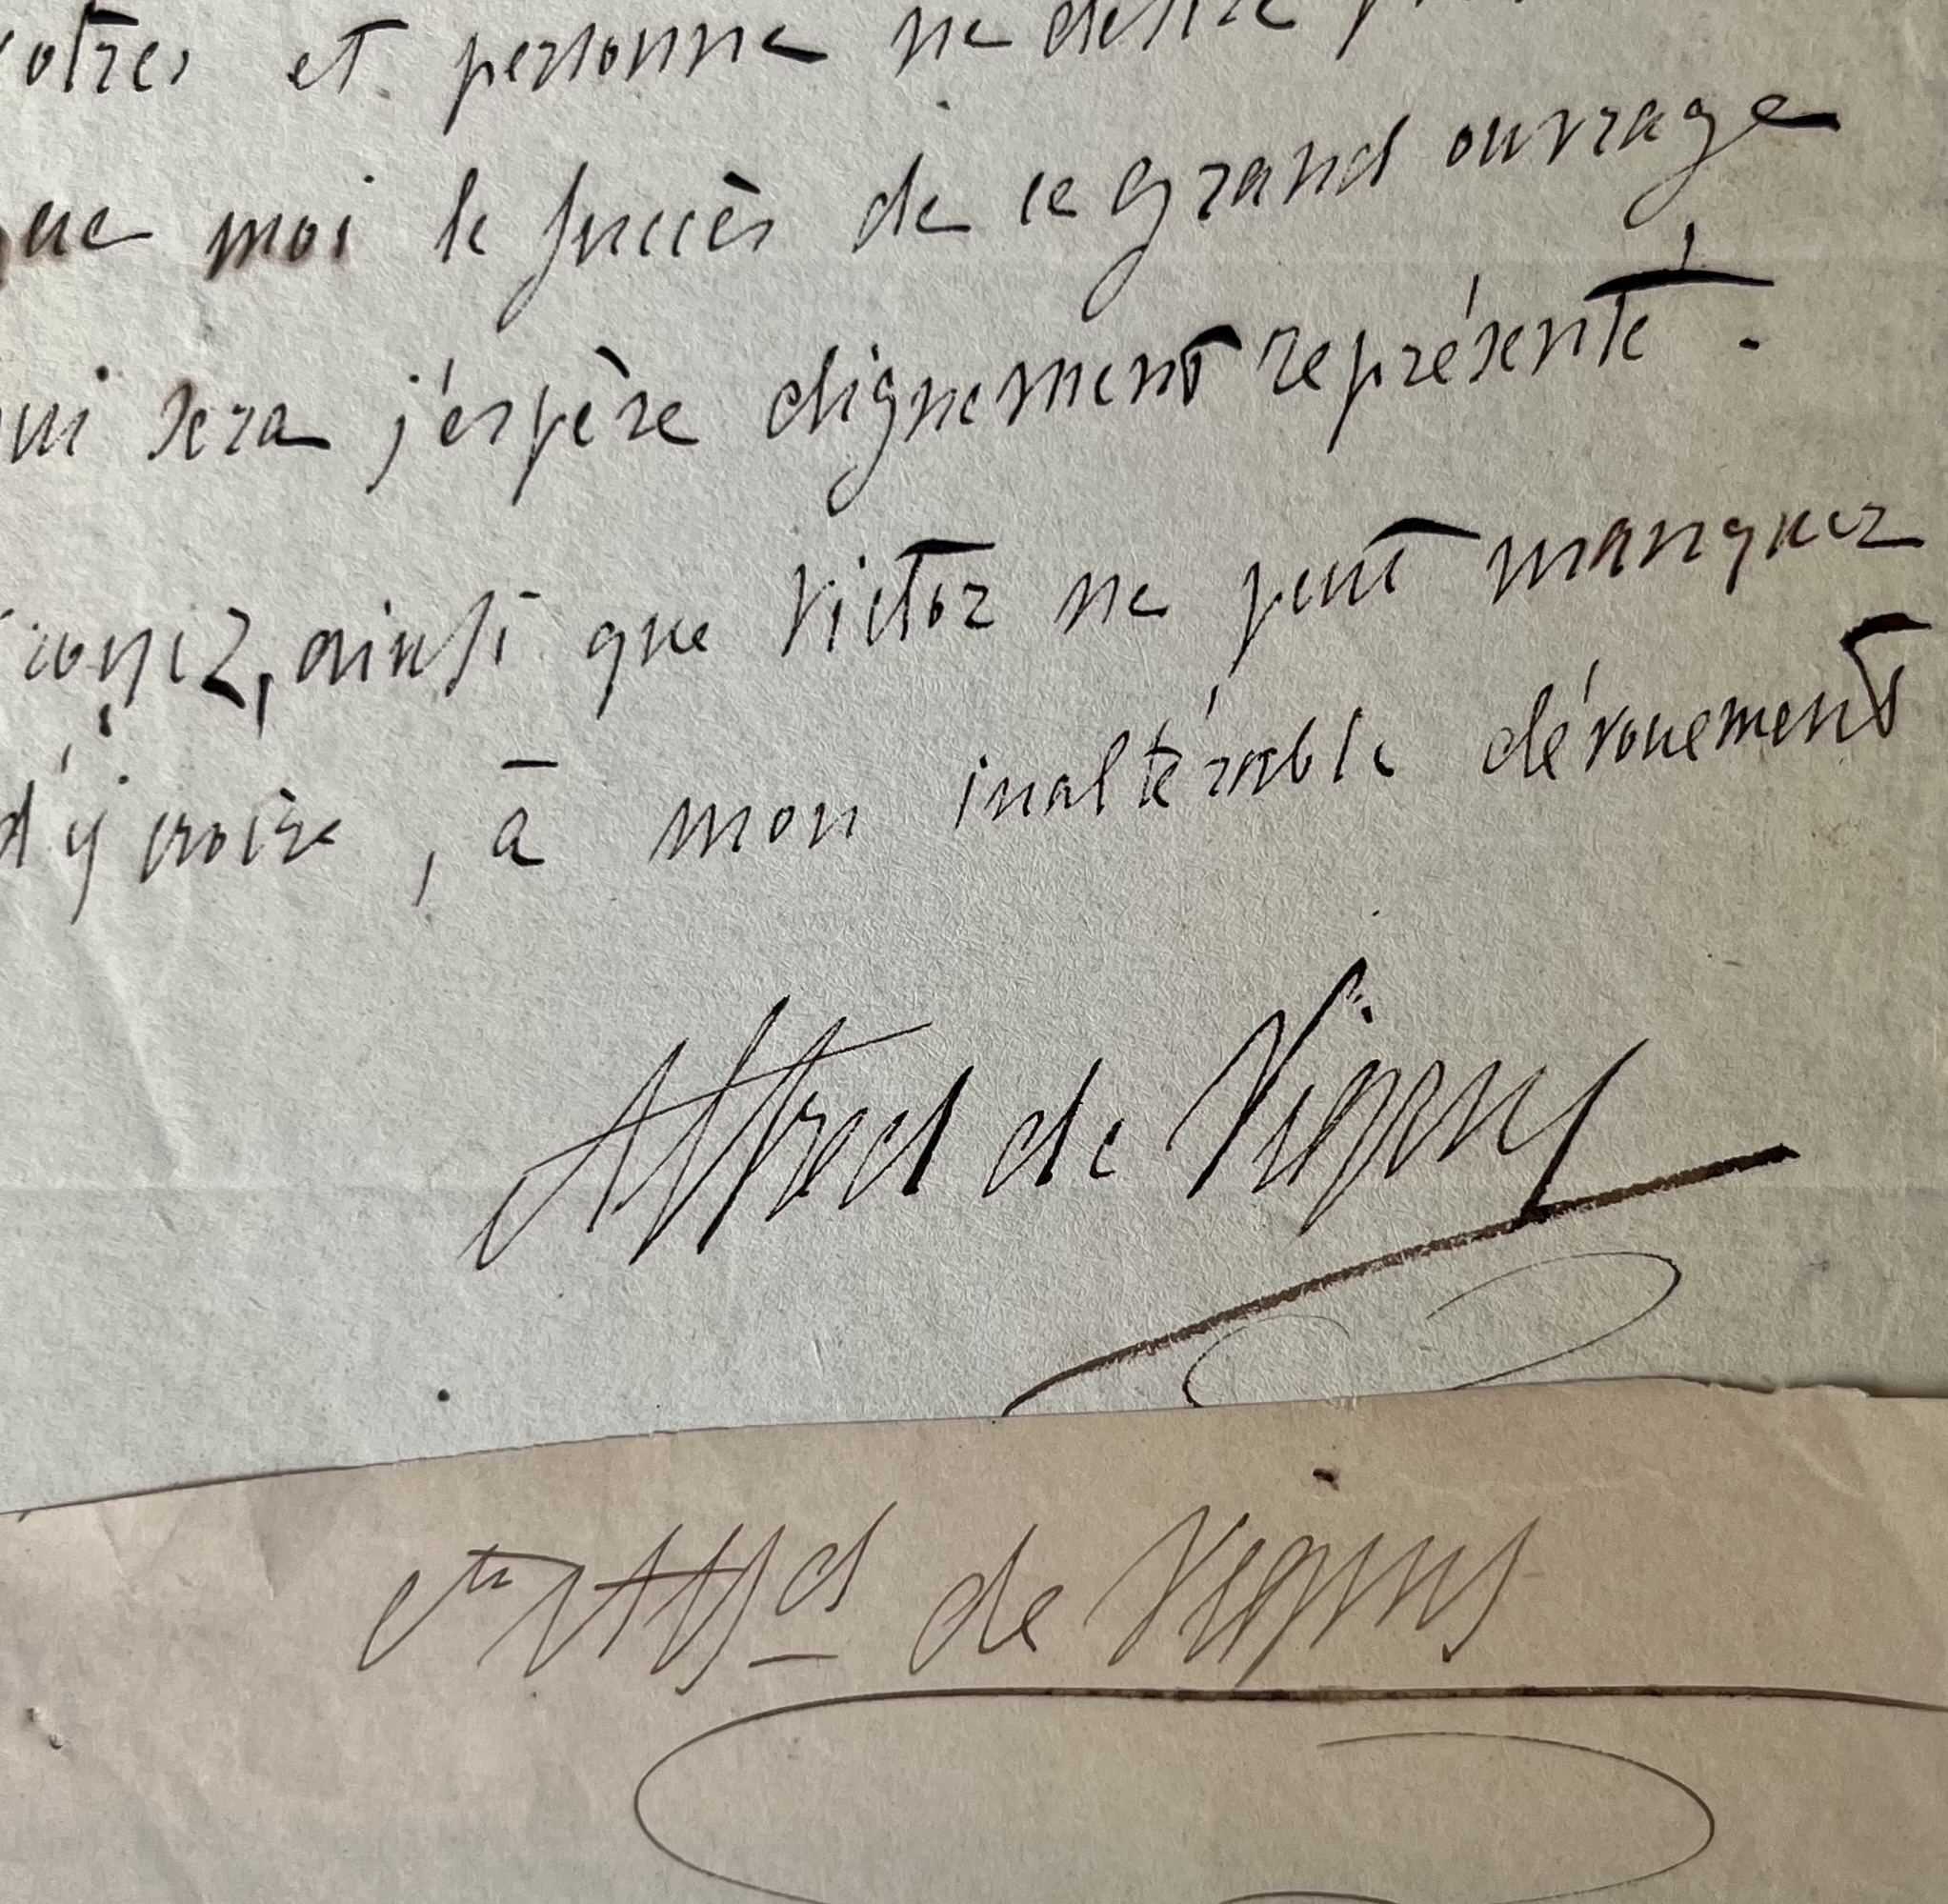 vôtres et personne ne désire
que moi le succès de ce grand ouvrage
qui sera j'espère dignement représenté.
croyez, ainsi que Victor ne peut manquer
d'y croire, à mon inaltérable dévouement
Alfred de Vigny
Cte Alfd de Vigny